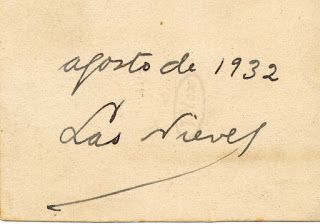 agosto de 1932
Las Nieves